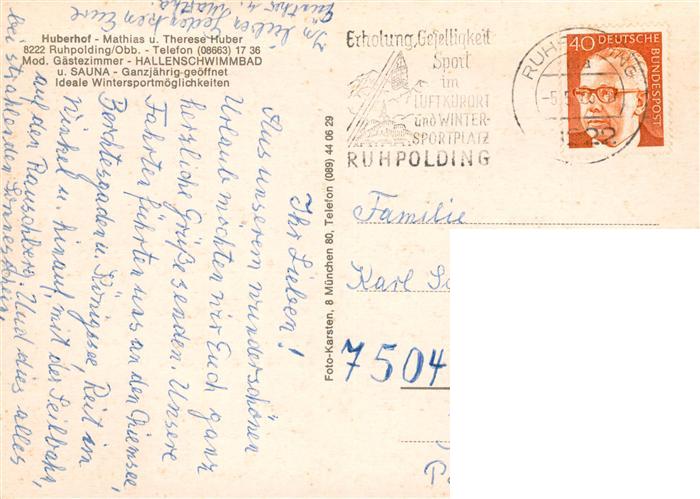 Huberhof - Mathias u. Therese Huber
8222 Ruhpolding/Obb. - Telefon (08663) 17 36
Mod. Gästezimmer - HALLENSCHWIMMBAD
u. SAUNA - Ganzjährig geöffnet
Ideale Wintersportmöglichkeiten
Ihr Lieben!
Aus unserem wunderschönen
Urlaub möchten wir Euch ganz
herzliche Grüße senden. Unsere
Fahrten führten uns an den Chiemsee,
Berchtesgaden u. Königssee, Reit im
Winkel u. hinauf mit der Seilbahn,
auf den Rauschberg. Und dies alles
bei strahlendem Sonnenschein.
In lieben Gedenken Eure
Foto-Karsten, 8 München 80, Telefon (089) 44 06 29
Erholung, Geselligkeit
Sport
im
LUFTKURORT
und WINTER-
SPORTPLATZ
RUHPOLDING
RUHPOLDING
8222
40 DEUTSCHE
BUNDESPOST
Familie
Karl
7504